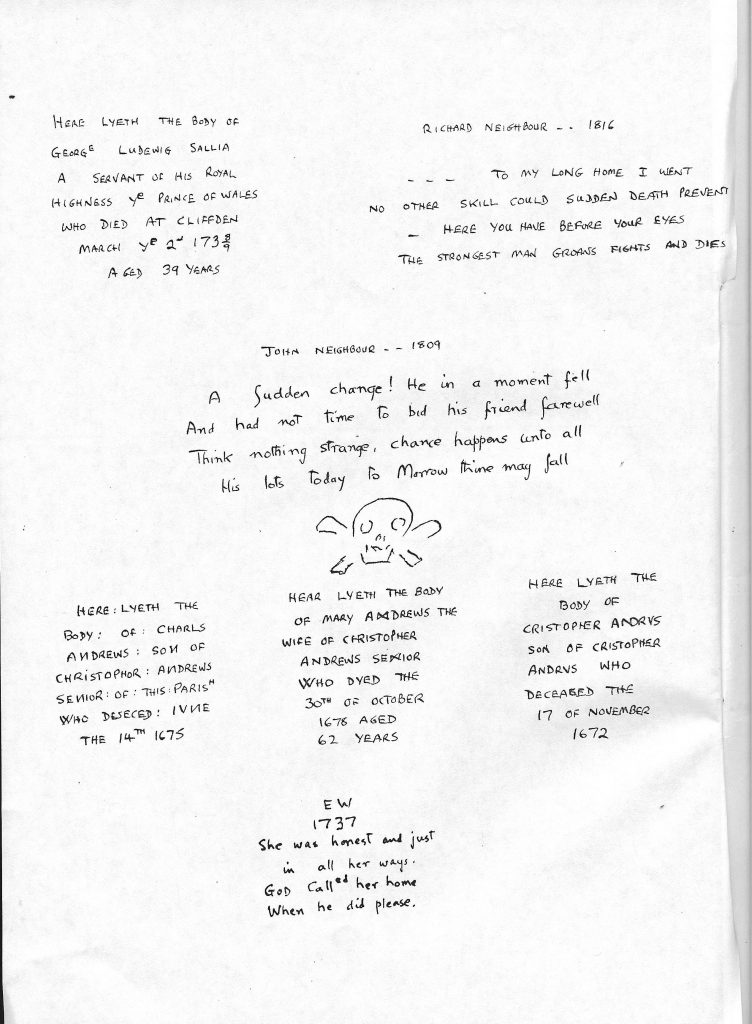 HERE LYETH THE BODY OF
GEORGE LUDEWIG SALLIA
A SERVANT OF HIS ROYAL
HIGHNESS ye PRINCE OF WALES
WHO DIED AT CLIFFDEN
MARCH ye 2d 173 8/9
AGED 39 YEARS
RICHARD NEIGHBOUR -- 1816
--- TO MY LONG HOME I WENT
NO OTHER SKILL COULD SUDDEN DEATH PREVENT
- HERE YOU HAVE BEFORE YOUR EYES
THE STRONGEST MAN GROANS FIGHTS AND DIES
JOHN NEIGHBOUR -- 1809
A Sudden change! He in a moment fell
And had not time to bid his friend farewell
Think nothing strange, chance happens unto all
His lots today to Morrow thine may fall
HERE: LYETH THE
BODY: OF: CHARLS
ANDREWS: SON OF
CHRISTOPHOR: ANDREWS
SENIOR: OF: THIS: PARISH
WHO DESECED: IVNE
THE 14TH 1675
HEAR LYETH THE BODY
OF MARY ANDREWS THE
WIFE OF CHRISTOPHER
ANDREWS SENIOR
WHO DYED THE
30TH OF OCTOBER
1678 AGED
62 YEARS
HERE LYETH THE
BODY OF
CRISTOPHER ANDRVS
SON OF CRISTOPHER
ANDRVS WHO
DECEASED THE
17 OF NOVEMBER
1672
EW
1737
She was honest and just
in all her ways.
GOD Called her home
When he did please.